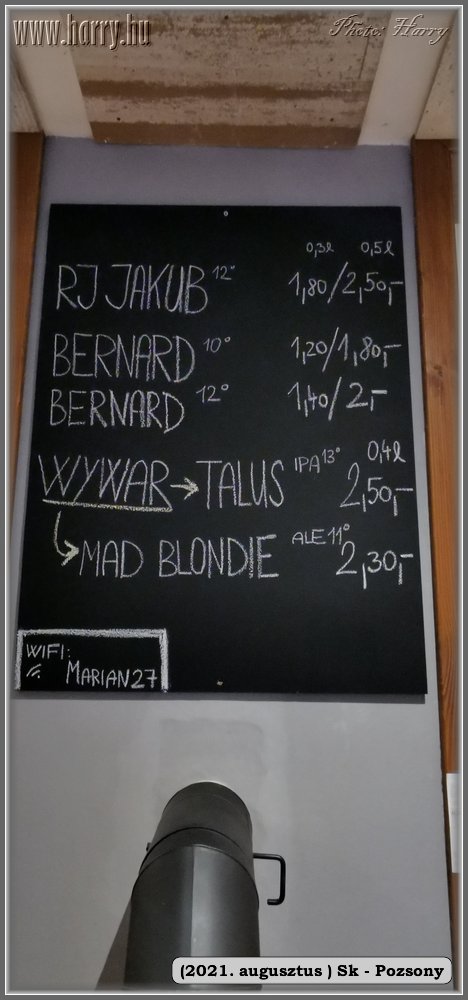 www.horry.hu
Photo: Horry
0,3l 0,5l
RJ JAKUB 12° 1,80/2,50,-
BERNARD 10° 1,20/1,80,-
BERNARD 12° 1,40/2,-
0,4l
WYWAR → TALUS IPA 13° 2,50,-
→ MAD BLONDIE ALE 11° 2,30,-
WIFI:
MARIAN27
(2021. augusztus ) Sk - Pozsony